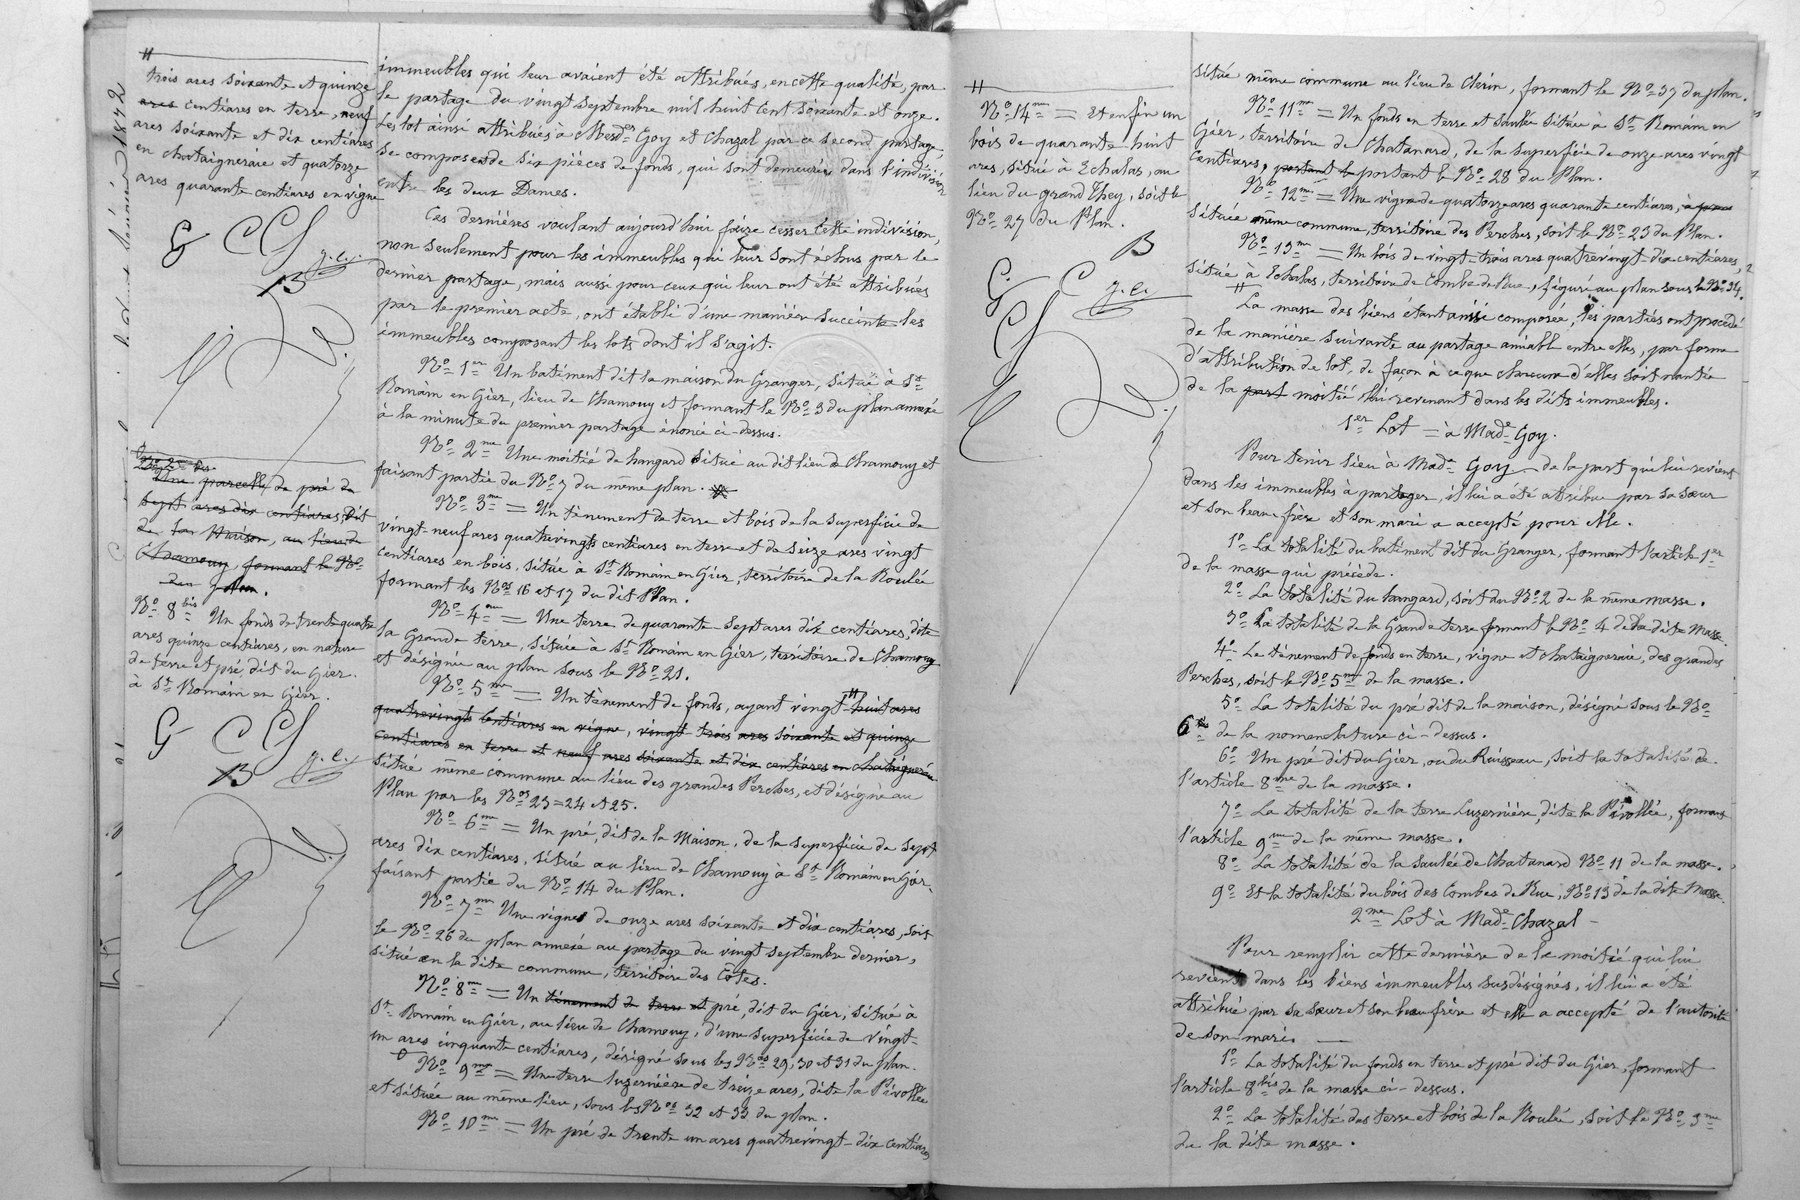 #
trois ares soixante et quinze
ares centiares en terre, neuf
ares soixante et dix centiares
en chataigneraie et quatorze
ares quarante centiares en vigne
G C Ch
J.C.
B
N° 2me bis
Une parcelle de pré de
sept ares dix centiares, dit
de la Maison, au lieu de
Chamouy, formant le N°
du plan.
N° 8 bis Un fonds de trente quatre
ares quinze centiares, en nature
de terre et pré, dit du Gier.
à St Romain en Gier.
G C Ch
B J.C.
immeubles qui leur avaient été attribués, en cette qualité, par
le partage du vingt septembre mil huit cent soixante et onze.
Les lot ainsi attribués à Mesdes Goy et Chazal par ce second partage,
se composent de six pièces de fonds, qui sont demeurées dans l'indivision
entre les deux Dames.
Ces dernières voulant aujourd'hui faire cesser cette indivision,
non seulement pour les immeubles qui leur sont échus par le
dernier partage, mais aussi pour ceux qui leur ont été attribués
par le premier acte, ont établi d'une manière succinte les
immeubles composant les lots dont il s'agit.
N° 1er Un batiment dit la maison du Granger, situé à St
Romain en Gier, lieu de Chamouy et formant le N° 3 du plan annexé
à la minute du premier partage énoncé ci-dessus.
N° 2me Une moitié de hangard situé au dit lieu de Chamouy et
faisant partie du N° 7 du même plan.
N° 3me = Un tènement de terre et bois de la superficie de
vingt-neuf ares quatrevingts centiares en terre et de seize ares vingt
centiares en bois, située à St Romain en Gier, territoire de la Roulée
formant les Nos 16 et 17 du dit Plan.
N° 4me = Une terre de quarante sept ares dix centiares, dite
la Grande terre, située à St Romain en Gier, territoire de Chamouy
et désignée au plan sous le N° 21.
N° 5me = Un tènement de fonds, ayant vingt # huit ares
quatrevingts centiares en vigne, vingt trois ares soixante et quinze
centiares en terre et neuf ares soixante et dix centiares en chataigneraie
situé même commune au lieu des grandes Perches, et désigné au
Plan par les Nos 23=24 et 25.
N° 6me = Un pré, dit de la Maison, de la superficie de sept
ares dix centiares, situé au lieu de Chamouy à St Romain en Gier,
faisant partie du N° 14 du Plan.
N° 7me Une vigne de onze ares soixante et dix centiares, soit
le N° 26 du plan annexé au partage du vingt septembre dernier,
situé en la dite commune, territoire des Côtes.
N° 8me = Un tènement de terre et pré, dit du Gier, situé à
St Romain en Gier, au lieu de Chamouy, d'une superficie de vingt-
un ares cinquante centiares, désigné sous les Nos 29, 30 et 31 du plan.
N° 9me = Une terre luzernière de treize ares, dite la Pivollée
et située au même lieu, sous les Nos 32 et 33 du plan.
N° 10me = Un pré de trente un ares quatrevingt-dix centiares
#
N° 14me = Et enfin un
bois de quarante huit
ares, situé à Echalas, au
lieu du grand Chey, soit le
N° 27 du Plan.
B
G. C J.C.
Ch
situé même commune au lieu de Clérin, formant le N° 37 du plan.
N° 11me = Un fonds en terre et saulée située à St Romain en
Gier, territoire de Chatanard, de la superficie de onze ares vingt
centiares, portant le portant le N° 28 du Plan.
N° 12me = Une vigne de quatorze ares quarante centiares,
située même commune, territoire des Perches, soit le N° 23 du Plan.
N° 13me = Un bois de vingt-trois ares quatrevingt-dix centiares,
situé à Echalas, territoire de Combe de Rue, figuré au plan sous le N° 34.
# La masse des biens étant ainsi composée, les parties ont procédé
de la manière suivante au partage amiable entre elles, par forme
d'attribution de lot, de façon à ce que chacune d'elles soit nantie
de la part moitié lui revenant dans les dits immeubles.
1er Lot = à Made Goy.
Pour tenir lieu à Made Goy de la part qui lui revient
dans les immeubles à partager, il lui a été attribué par sa sœur
et son beau frère et son mari a accepté pour elle.
1° La totalité du batiment dit du Granger, formant l'article 1er
de la masse qui précède.
2° La totalité du hangard, soit du N° 2 de la même masse.
3° La totalité de la Grande terre formant le N° 4 de la dite Masse.
4° Le tènement de fonds en terre, vigne et chataigneraie, des grandes
Perches, soit le N° 5me de la masse.
5° La totalité du pré dit de la maison, désigné sous le N°
6 de la nomenclature ci-dessus.
6° Un pré dit du Gier, ou du Ruisseau, soit la totalité de
l'article 8me de la masse.
7° La totalité de la terre Luzernière, dite la Pivollée, formant
l'article 9me de la même masse.
8° La totalité de la saulée de Chatanard N° 11 de la masse.
9° Et la totalité du bois des Combes de Rue, N° 13 de la dite Masse.
2me Lot à Made Chazal -
Pour remplir cette dernière de la moitié qui lui
revient dans les biens immeubles susdésignés, il lui a été
attribué par sa sœur et son beau frère et elle a accepté de l'autorité
de son mari.
1° La totalité du fonds en terre et pré dit du Gier, formant
l'article 8 bis de la masse ci-dessus.
2° La totalité des terre et bois de la Roulée, soit le N° 3me
de la dite masse.